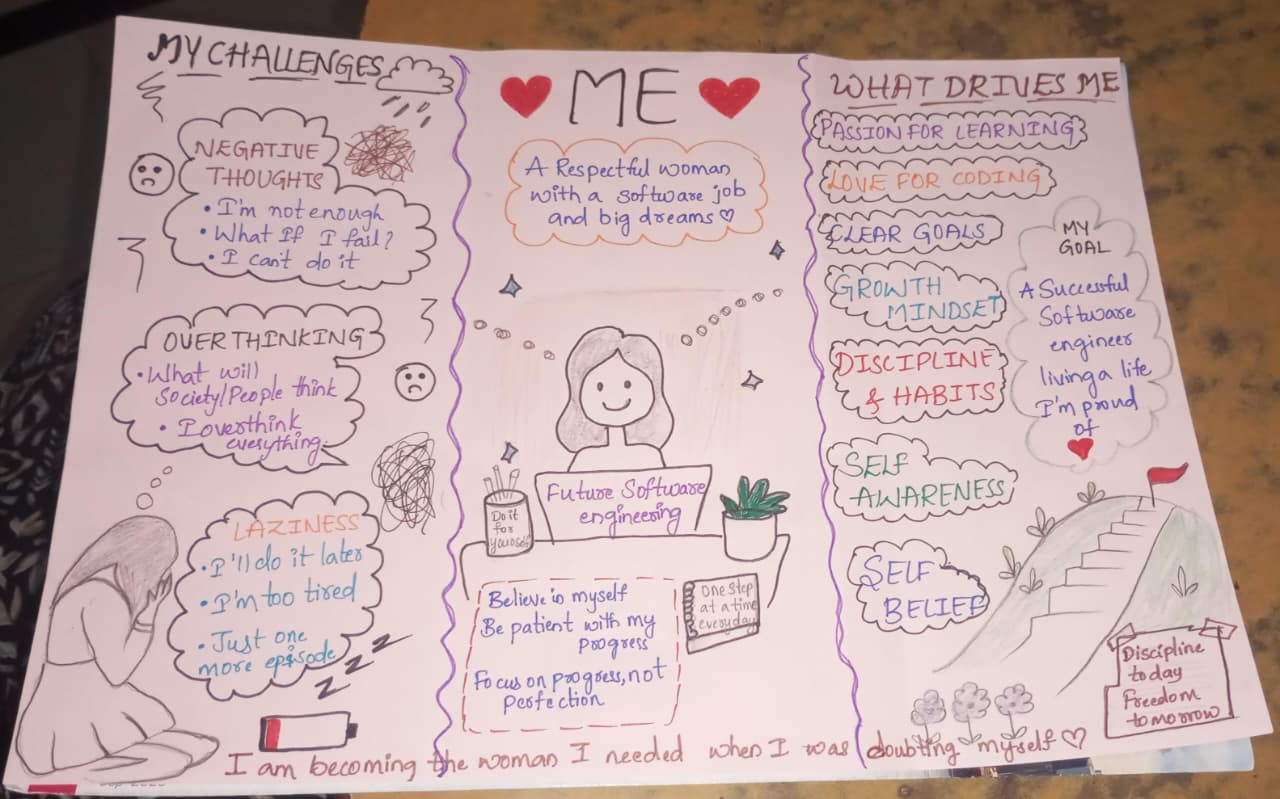 MY CHALLENGES
NEGATIVE
THOUGHTS
• I'm not enough
• What If I fail?
• I can't do it
OVERTHINKING
• What will
Society/People think
• I overthink
everything.
LAZINESS
• I'll do it later
• I'm too tired
• Just one
more episode
Z Z Z Z
ME
A Respectful woman
with a software job
and big dreams ♡
Future Software
engineering
Do it
for
yourself
Believe in myself
Be patient with my
progress
Focus on progress, not
perfection
One step
at a time
everyday
WHAT DRIVES ME
PASSION FOR LEARNING
LOVE FOR CODING
CLEAR GOALS
GROWTH
MINDSET
DISCIPLINE
& HABITS
SELF
AWARENESS
SELF
BELIEF
MY
GOAL
A Successful
Software
engineer
living a life
I'm proud
of
Discipline
today
Freedom
tomorrow
I am becoming the woman I needed when I was doubting myself ♡